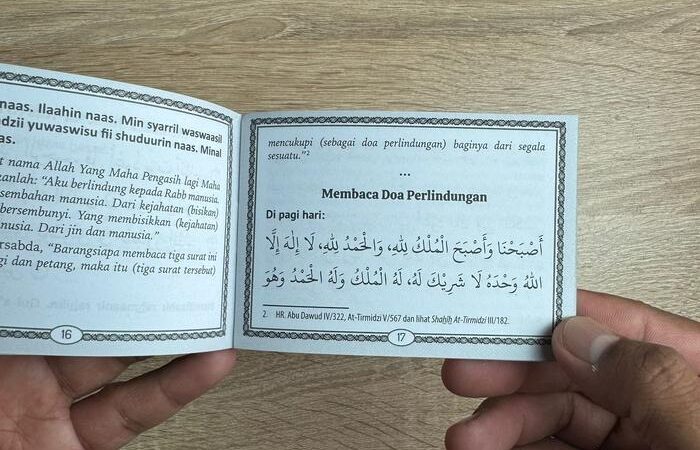 naas. Ilaahin naas. Min syarril waswaasil
dzii yuwaswisu fii shuduurin naas. Minal
as.
t nama Allah Yang Maha Pengasih lagi Maha
kanlah: “Aku berlindung kepada Rabb manusia.
sembahan manusia. Dari kejahatan (bisikan)
bersembunyi. Yang membisikkan (kejahatan)
nusia. Dari jin dan manusia.”
rsabda, “Barangsiapa membaca tiga surat ini
gi dan petang, maka itu (tiga surat tersebut)
16
mencukupi (sebagai doa perlindungan) baginya dari segala
sesuatu.”2
...
Membaca Doa Perlindungan
Di pagi hari:
أَصْبَحْنَا وَأَصْبَحَ الْمُلْكُ لِلَّهِ، وَالْحَمْدُ لِلَّهِ، لَا إِلٰهَ إِلَّا
اللهُ وَحْدَهُ لَا شَرِيْكَ لَهُ، لَهُ الْمُلْكُ وَلَهُ الْحَمْدُ وَهُوَ
2. HR. Abu Dawud IV/322, At-Tirmidzi V/567 dan lihat Shahih At-Tirmidzi III/182.
17